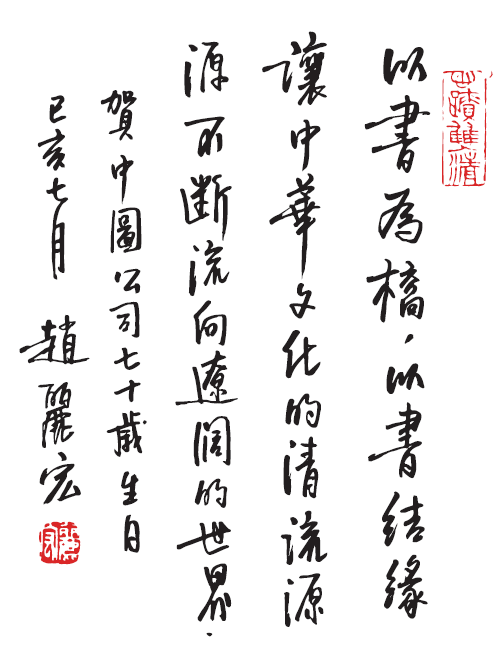 以書為橋，以書結緣
讓中華文化的清流源
源不断流向遼闊的世界.
賀中圖公司七十歲生日
己亥七月 趙麗宏